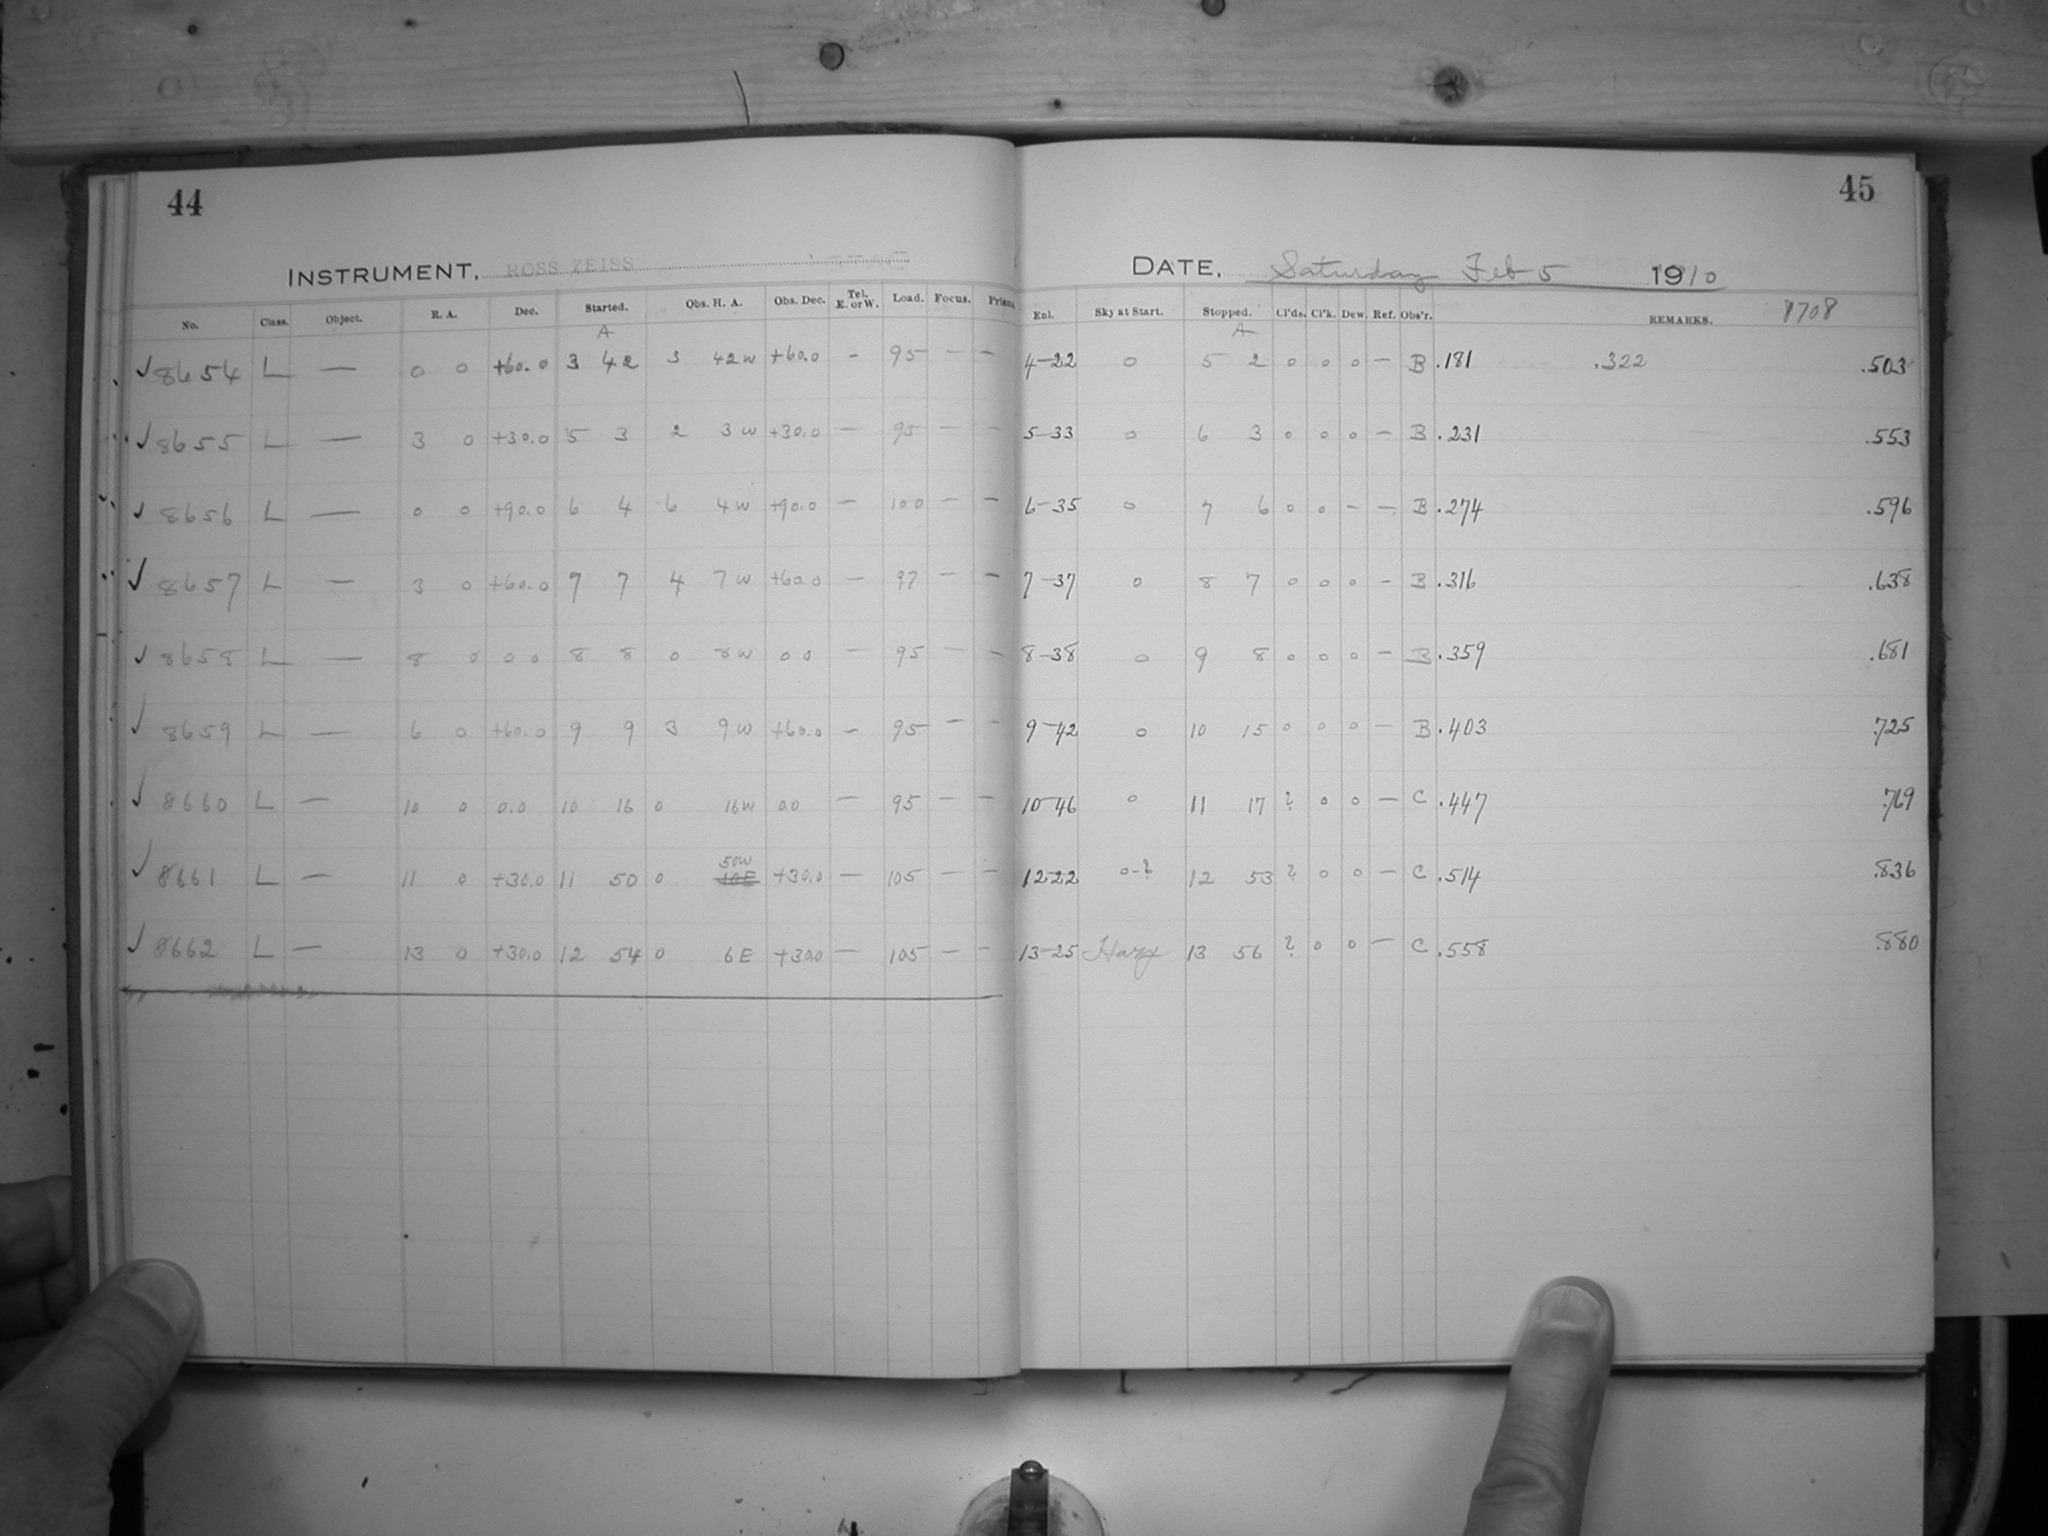 44
INSTRUMENT. ROSS ZEISS
No. Class. Object. R. A. Dec. Started. Obs. H. A. Obs. Dec. Tel. E. or W. Load. Focus. Prism
A
✓ 8654 L — 0 0 +60.0 3 42 3 42w +60.0 - 95 — —
✓ 8655 L — 3 0 +30.0 5 3 2 3w +30.0 — 95 — —
✓ 8656 L — 0 0 +90.0 6 4 6 4w +90.0 — 100 — —
✓ 8657 L — 3 0 +60.0 7 7 4 7w +60.0 — 97 — —
✓ 8658 L — 8 0 0 0 8 8 0 8w 0 0 — 95 — —
✓ 8659 L — 6 0 +60.0 9 9 3 9w +60.0 — 95 — —
✓ 8660 L — 10 0 0.0 10 16 0 16w 0.0 — 95 — —
50w
✓ 8661 L — 11 0 +30.0 11 50 0 10E +30.0 — 105 — —
✓ 8662 L — 13 0 +30.0 12 54 0 6E +30.0 — 105 — —
45
DATE. Saturday Feb 5 1910
Enl. Sky at Start. Stopped. Cl'ds. Cl'k. Dew. Ref. Obs'r. REMARKS. 8708
A
4-22 0 5 2 0 0 0 — B .181 .322 .503
5-33 0 6 3 0 0 0 — B .231 .553
6-35 0 7 6 0 0 — — B .274 .596
7-37 0 8 7 0 0 0 - B .316 .638
8-38 0 9 8 0 0 0 — B .359 .681
9-42 0 10 15 0 0 0 — B .403 .725
10-46 0 11 17 ? 0 0 — C .447 .769
12-22 0-? 12 53 ? 0 0 — C .514 .836
13-25 Hazy 13 56 ? 0 0 — C .558 .880